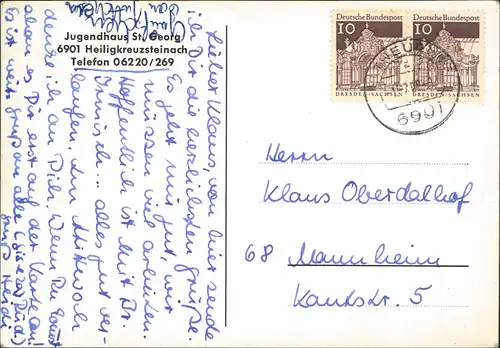 Jugendhaus St. Georg
6901 Heiligkreuzsteinach
Telefon 06220/269
Lieber Klaus, von hier sende
ich Dir die herzlichsten Grüße.
Es geht mir gut, wir
müssen viel arbeiten.
Hoffentlich ist mit Dr.
alles gut ver-
laufen. Am Mittwoch
denke ich an Dich. Wenn Du
Dir erst auf der Karte an!
Es ist weit. Gruß an alle
Gruß Heidi
Deutsche Bundespost
10
DRESDEN/SACHSEN
Deutsche Bundespost
10
DRESDEN/SACHSEN
6901
Herrn
Klaus Oberdalhof
68 Mannheim
Kantstr. 5